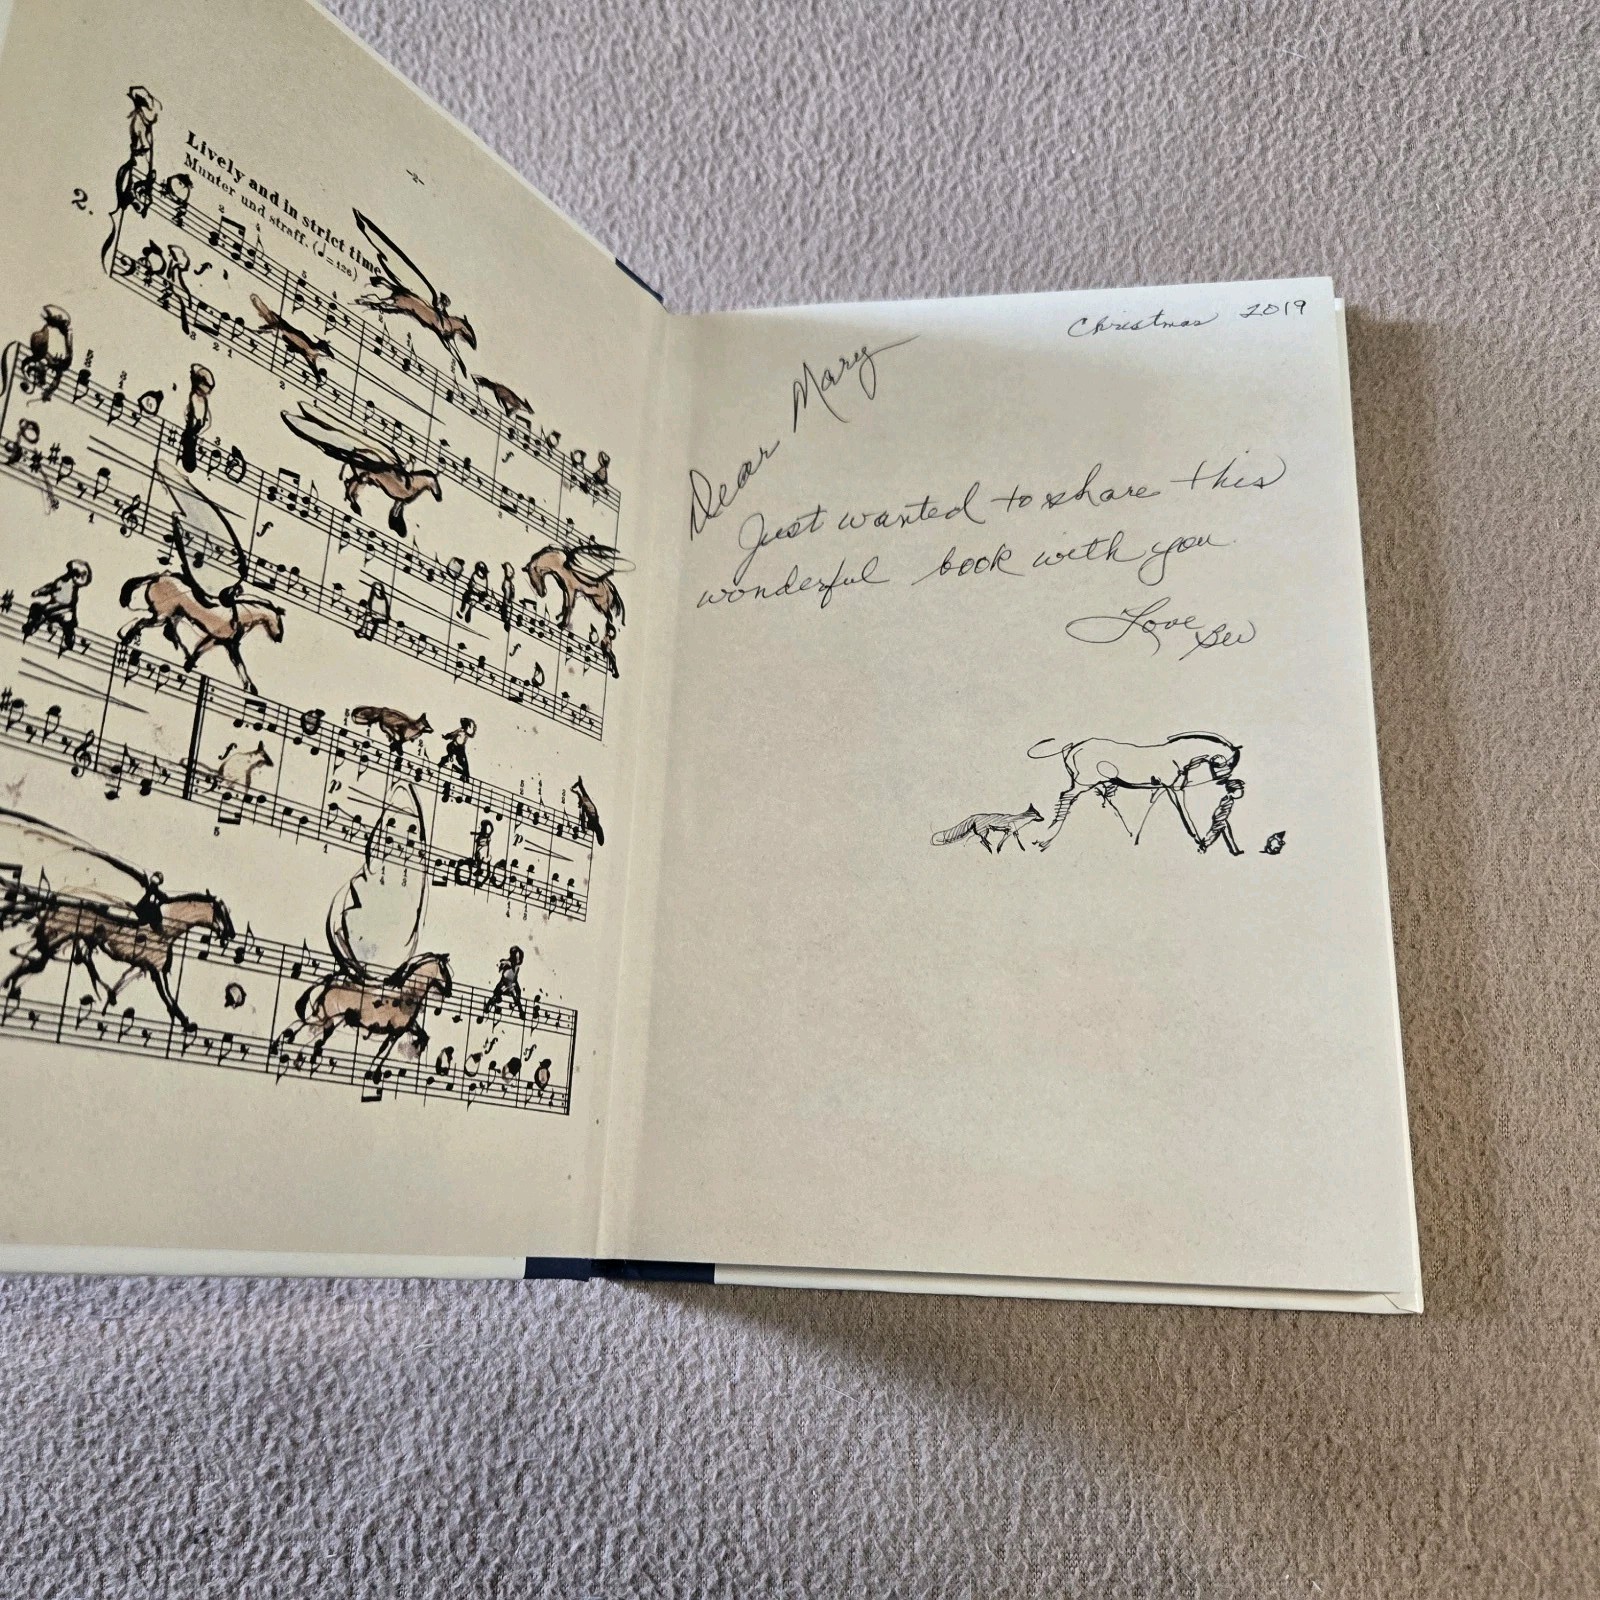 -2-
Lively and in strict time
Munter und straff. (♩=126)
2.
Christmas 2019
Dear Mary
Just wanted to share this
wonderful book with you.
Love Bev